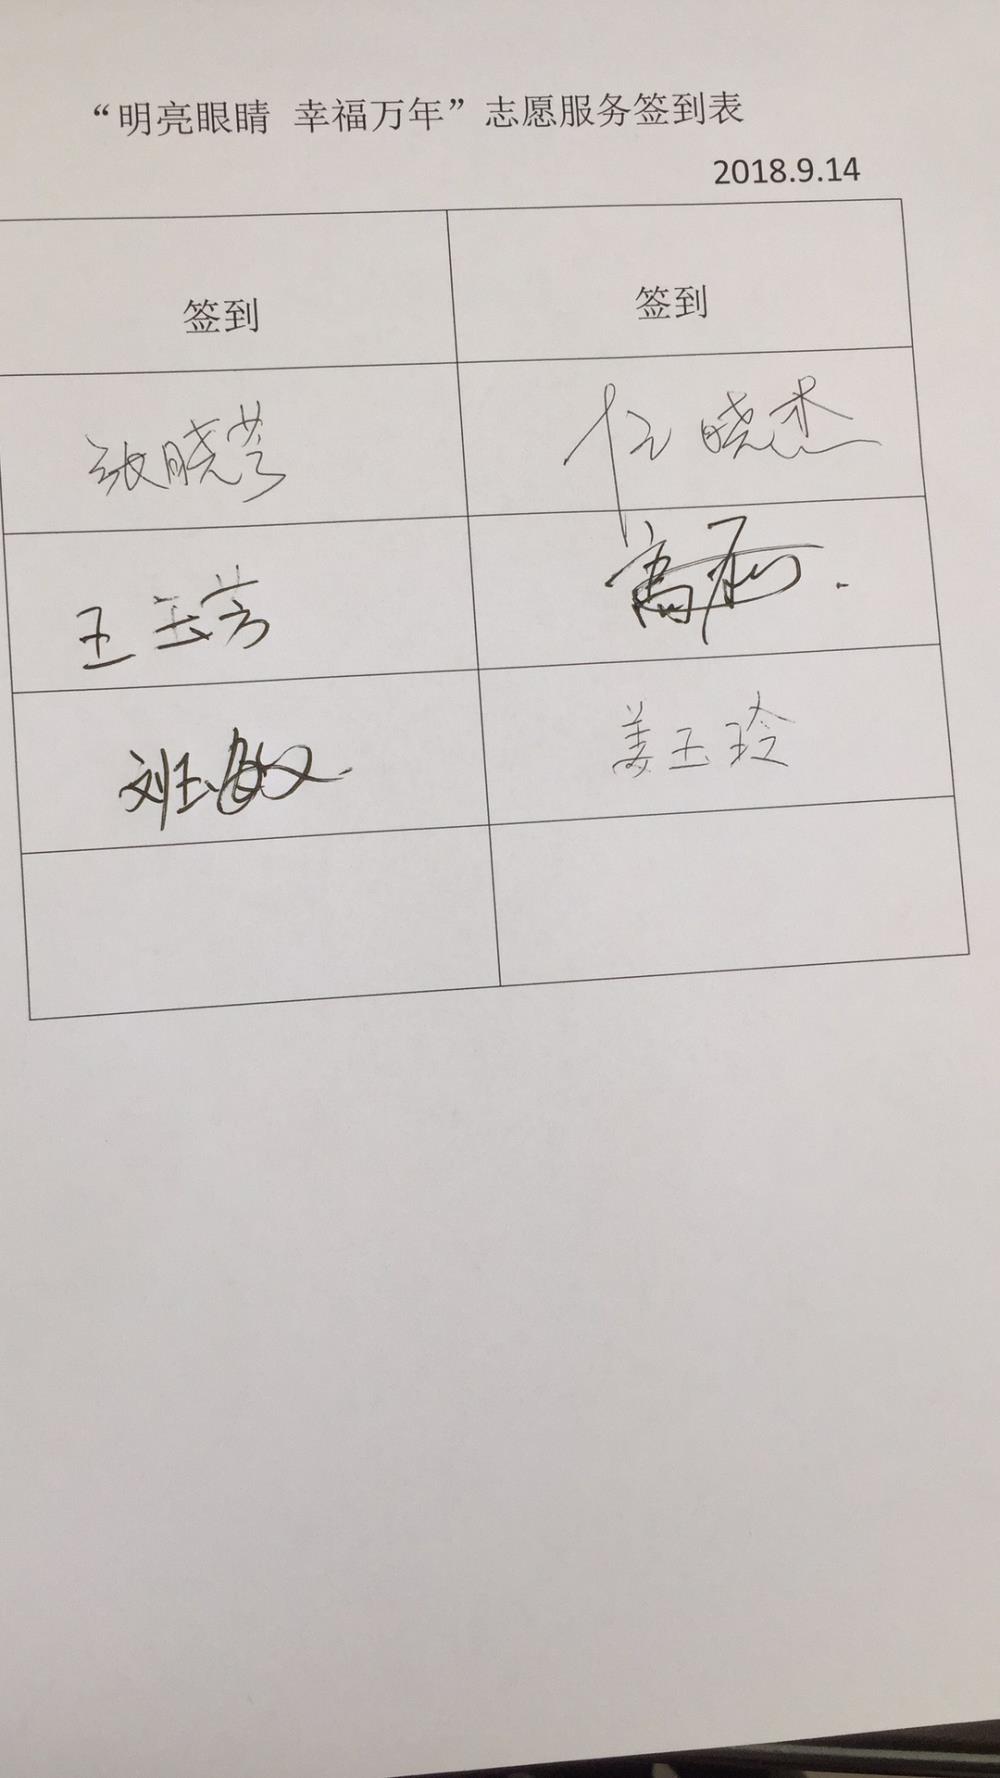 “明亮眼睛 幸福万年”志愿服务签到表
2018.9.14
签到 签到
张晓芳 任晓杰
王玉芳 高
刘玉敏 姜玉玲